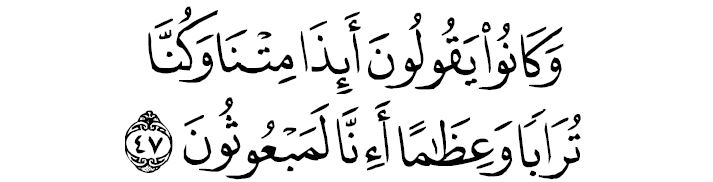 وَكَانُوا۟ يَقُولُونَ أَئِذَا مِتْنَا وَكُنَّا
تُرَابًا وَعِظَٰمًا أَءِنَّا لَمَبْعُوثُونَ ٤٧